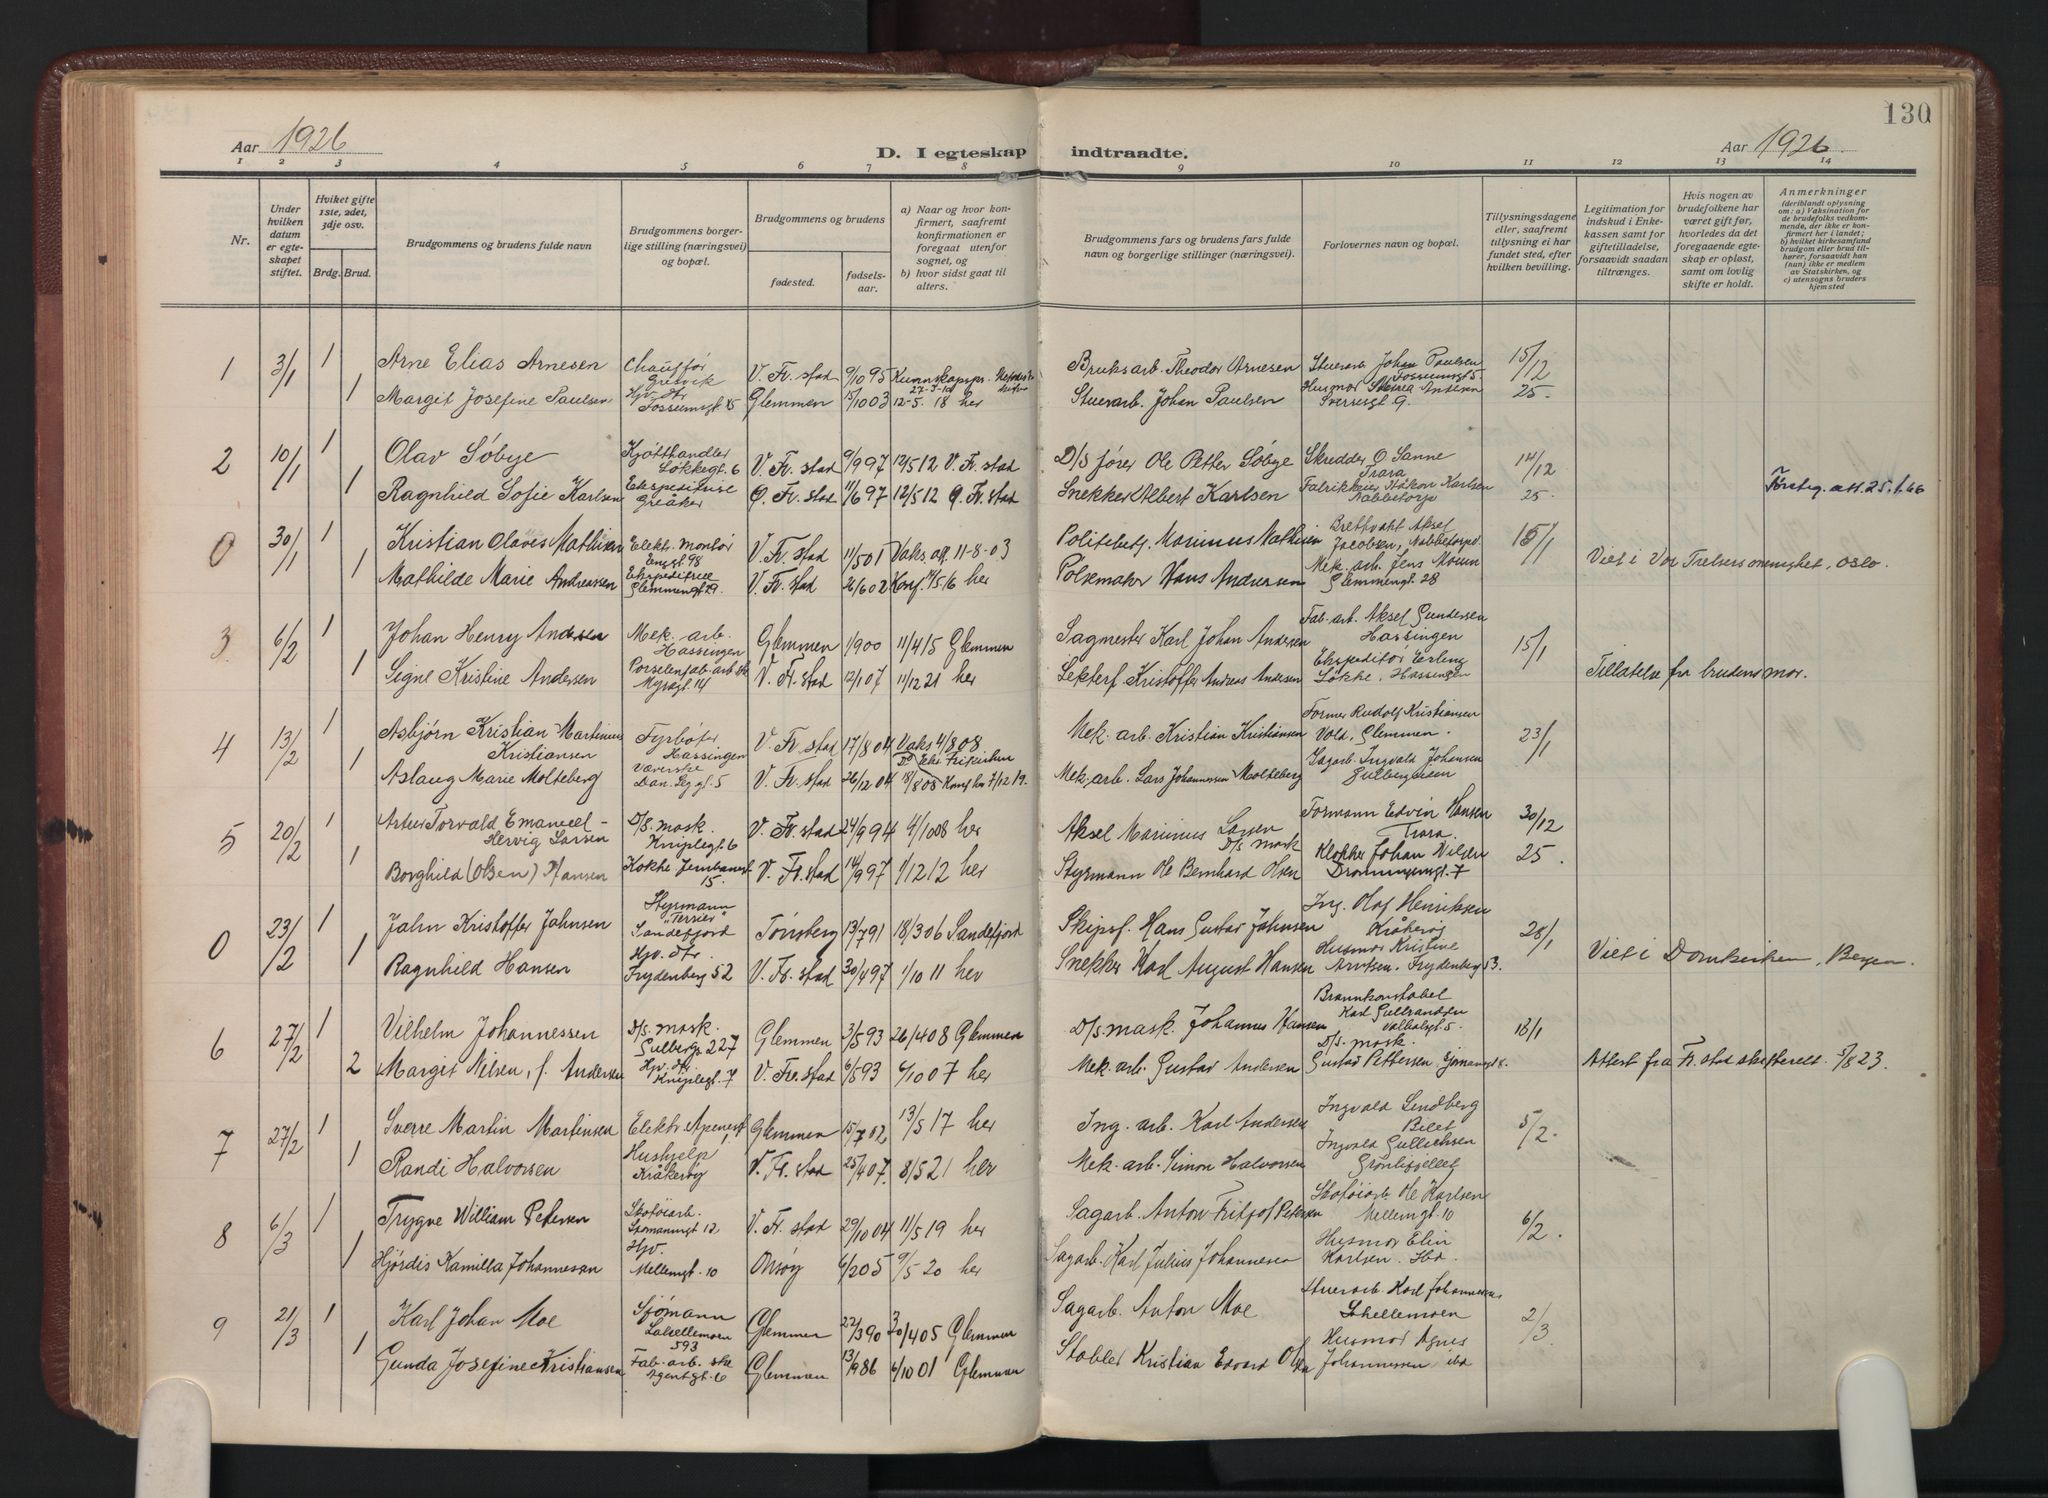 130
Aar 1926
D. I egteskap indtraadte.
Aar 1926.
1 2 3 4 5 6 7 8 9 10 11 12 13 14
Nr.
Under hvilken datum er egteskapet stiftet.
Hviket gifte 1ste, 2det, 3dje osv.
Brdg. Brud.
Brudgommens og brudens fulde navn
Brudgommens borgerlige stilling (næringsvei) og bopæl.
Brudgommens og brudens
fødested.
fødselsaar.
a) Naar og hvor konfirmert, saafremt konfirmationen er foregaat utenfor sognet, og
b) hvor sidst gaat til alters.
Brudgommens fars og brudens fars fulde navn og borgerlige stillinger (næringsvei).
Forlovernes navn og bopæl.
Tillysningsdagene eller, saafremt tillysning ei har fundet sted, efter hvilken bevilling.
Legitimation for indskud i Enkekassen samt for giftetilladelse, forsaavidt saadan tiltrænges.
Hvis nogen av brudefolkene har været gift før, hvorledes da det foregaaende egteskap er opløst, samt om lovlig skifte er holdt.
Anmerkninger
(deriblandt oplysning om: a) Vaksination for de brudefolks vedkommende, der ikke er konfirmert her i landet; b) hvilket kirkesamfund brudgom eller brud tilhører, forsaavidt han (hun) ikke er medlem av Statskirken, og c) utensogns bruders hjemsted
1 3/1 1 Arne Elias Arnesen Chauffør Gresvik V. Fr. stad 9/10 95 Bruksarb. Theodor Arnesen Stuerarb. Johan Paulsen Fossumsgt 5. 15/12
1 Margit Josefine Paulsen Hjv. dtr Fossumsgt. 15 Glemmen 15/10 03 12-5. 18 her Stuerarb. Johan Paulsen Husmor Sverresgt 9. 25.
2 10/1 1 Olav Søbye Kjøtthandler Løkkegt. 6 V. Fr. stad 9/9 97 12/5 12 V. Fr. stad D/S fører Ole Petter Søbye Skredder O Sanne Trara 14/12
1 Ragnhild Sofie Karlsen Ekspeditrise Greåker Ø. Fr. stad 11/6 97 12/5 12 Ø. Fr. stad Snekker Albert Karlsen Håkon Karlsen Nabbetorp 25. 25.1.66
0 30/1 1 Kristian Olaves Mathisen Elektr. Montør Engt. 98 V. Fr. stad 11/5 01 Vaks. att. 11-8-03 Politibetj. Marinus Mathisen Brettvakt Aksel Jacobsen, Nabbetorp. 15/1 Viet i Vor Frelsers menighet, Oslo.
1 Mathilde Marie Andreassen Ekspeditrice Glemmengt. 29. V. Fr. stad 26/6 02 Konf. 14/5 16 her Hans Andersen Mek. arb. Jens Moum Glemmengt. 28
3. 6/2 1 Johan Henry Andersen Mek. arb. Hassingen Glemmen 1/9 00 11/4 15 Glemmen Sagmester Karl Johan Andersen Fab. arb. Aksel Gundersen Hassingen 15/1
1 Signe Kristine Andersen Porselenfab. arb. Myragt. 14 V. Fr. stad 12/1 07 11/12 21 her Kristoffer Andreas Andersen Ekspeditør Erling Løkke, Hassingen Tillatelse fra brudens mor.
4 13/2 1 Asbjørn Kristian Martinius Kristiansen Fyrbøter Hassingen V. Fr. stad 17/8 04 Vaks 4/8 08 Mek. arb. Kristian Kristiansen Former Rudolf Kristiansen Vold, Glemmen. 23/1
1 Aslaug Marie Molteberg Væverske V. Fr. stad 26/12 04 18/8 08 7/12 19. Mek. arb. Lars Johannessen Molteberg Sagarb. Ingvald Johansen Gulbergåsen
5 20/2 1 Artur Torvald Emanuel - Hervig Larsen D/S. mask. Kniplegt. 6 V. Fr. stad 24/9 94 4/10 08 her Aksel Marinius Larsen D/s mask Formann Edvin Hansen Trara. 30/12
1 Borghild (Olsen) Hansen Kokke Jernbanegt 15. V. Fr. stad 14/9 97 1/12 12 her Styrmann Ole Bernhard Olsen Klokker Johan Dronningensgt. 7 25.
0 23/2 1 Jahn Kristoffer Jahnsen Styrmann "Terrier" Sandefjord Tønsberg 13/7 91 18/3 06 Sandefjord Skipsf. Hans Gustav Jahnsen Ing. Olaf Henriksen Kråkerøy 28/1 Viet i Domkirken, Bergen.
1 Ragnhild Hansen Hjv. dtr. Frydenberg 52 V. Fr. stad 30/4 97 1/10 11 her Snekker Karl August Hansen Husmor Kristine Arntsen. Frydenberg 53.
6 27/2 1 Vilhelm Johannessen D/s. mask. Gulbergs. 227 Glemmen 3/5 93 26/4 08 Glemmen D/s mask. Johannes Hansen Brannkonstabel Karl Gulbrandsen Valhalsgt 5. 18/1
2 Margit Nilsen, f. Andersen Hjv. dtr Kniplegt. 7 V. Fre. stad 6/5 93 6/10 07 her Mek. arb. Gustav Andersen D/s. mask. Gustav Pettersen Attest fra Fr. stad skifterett. 5/8 23.
7 27/2 1 Sverre Martin Martinsen Glemmen 15/7 02 13/5 17 her Ing. arb. Karl Andersen Ingvald Lindberg Bilet 5/2.
1 Randi Halvorsen Hushjelp Kråkerøy V. Fr. stad 25/4 07. 8/5 21 her Mek. arb. Simon Halvorsen Ingvald Gullichsen Grønlifjellet
8 6/3 1 Trygve William Petersen Skotøiarb. V. Fr. stad 29/10 04 11/5 19 her Sagarb. Anton Fritjof Petersen Skotøiarb. Ole Karlsen Mellemgt. 10 6/2.
1 Hjørdis Kamilla Johannesen Hjv. Mellemgt. 10 Onsøy 6/2 05 9/5 20 her Sagarb. Karl Julius Johannesen Husmor Elin Karlsen. Ibd.
9 21/3 1 Karl Johan Moe Sjømann Labellemoen 593 Glemmen 22/3 90 30/4 05 Glemmen Sagarb. Anton Moe Stuerarb. Karl Johannesen Labellemoen 2/3
1 Gunda Josefine Kristiansen Fab. arb. ske Agentgt. 6 Glemmen 13/9 86 6/10 01 Glemmen Stabler Kristian Edvard Olsen Husmor Agnes Johannessen ibd